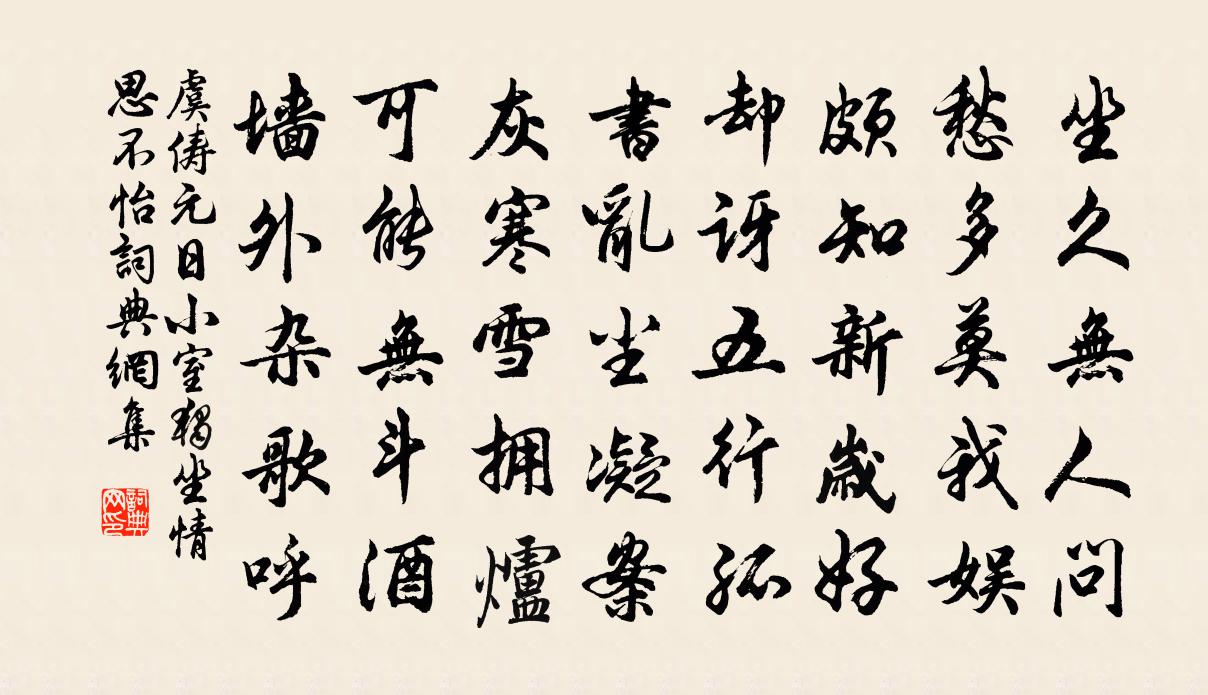 坐久無人問
愁多莫我娱
頗知新歲好
却訝五行孤
書亂尘凝案
灰寒雪拥爐
可能無斗酒
墙外杂歌呼
虞儔元日小室獨坐情
思不怡詞典網集
詞典
网印